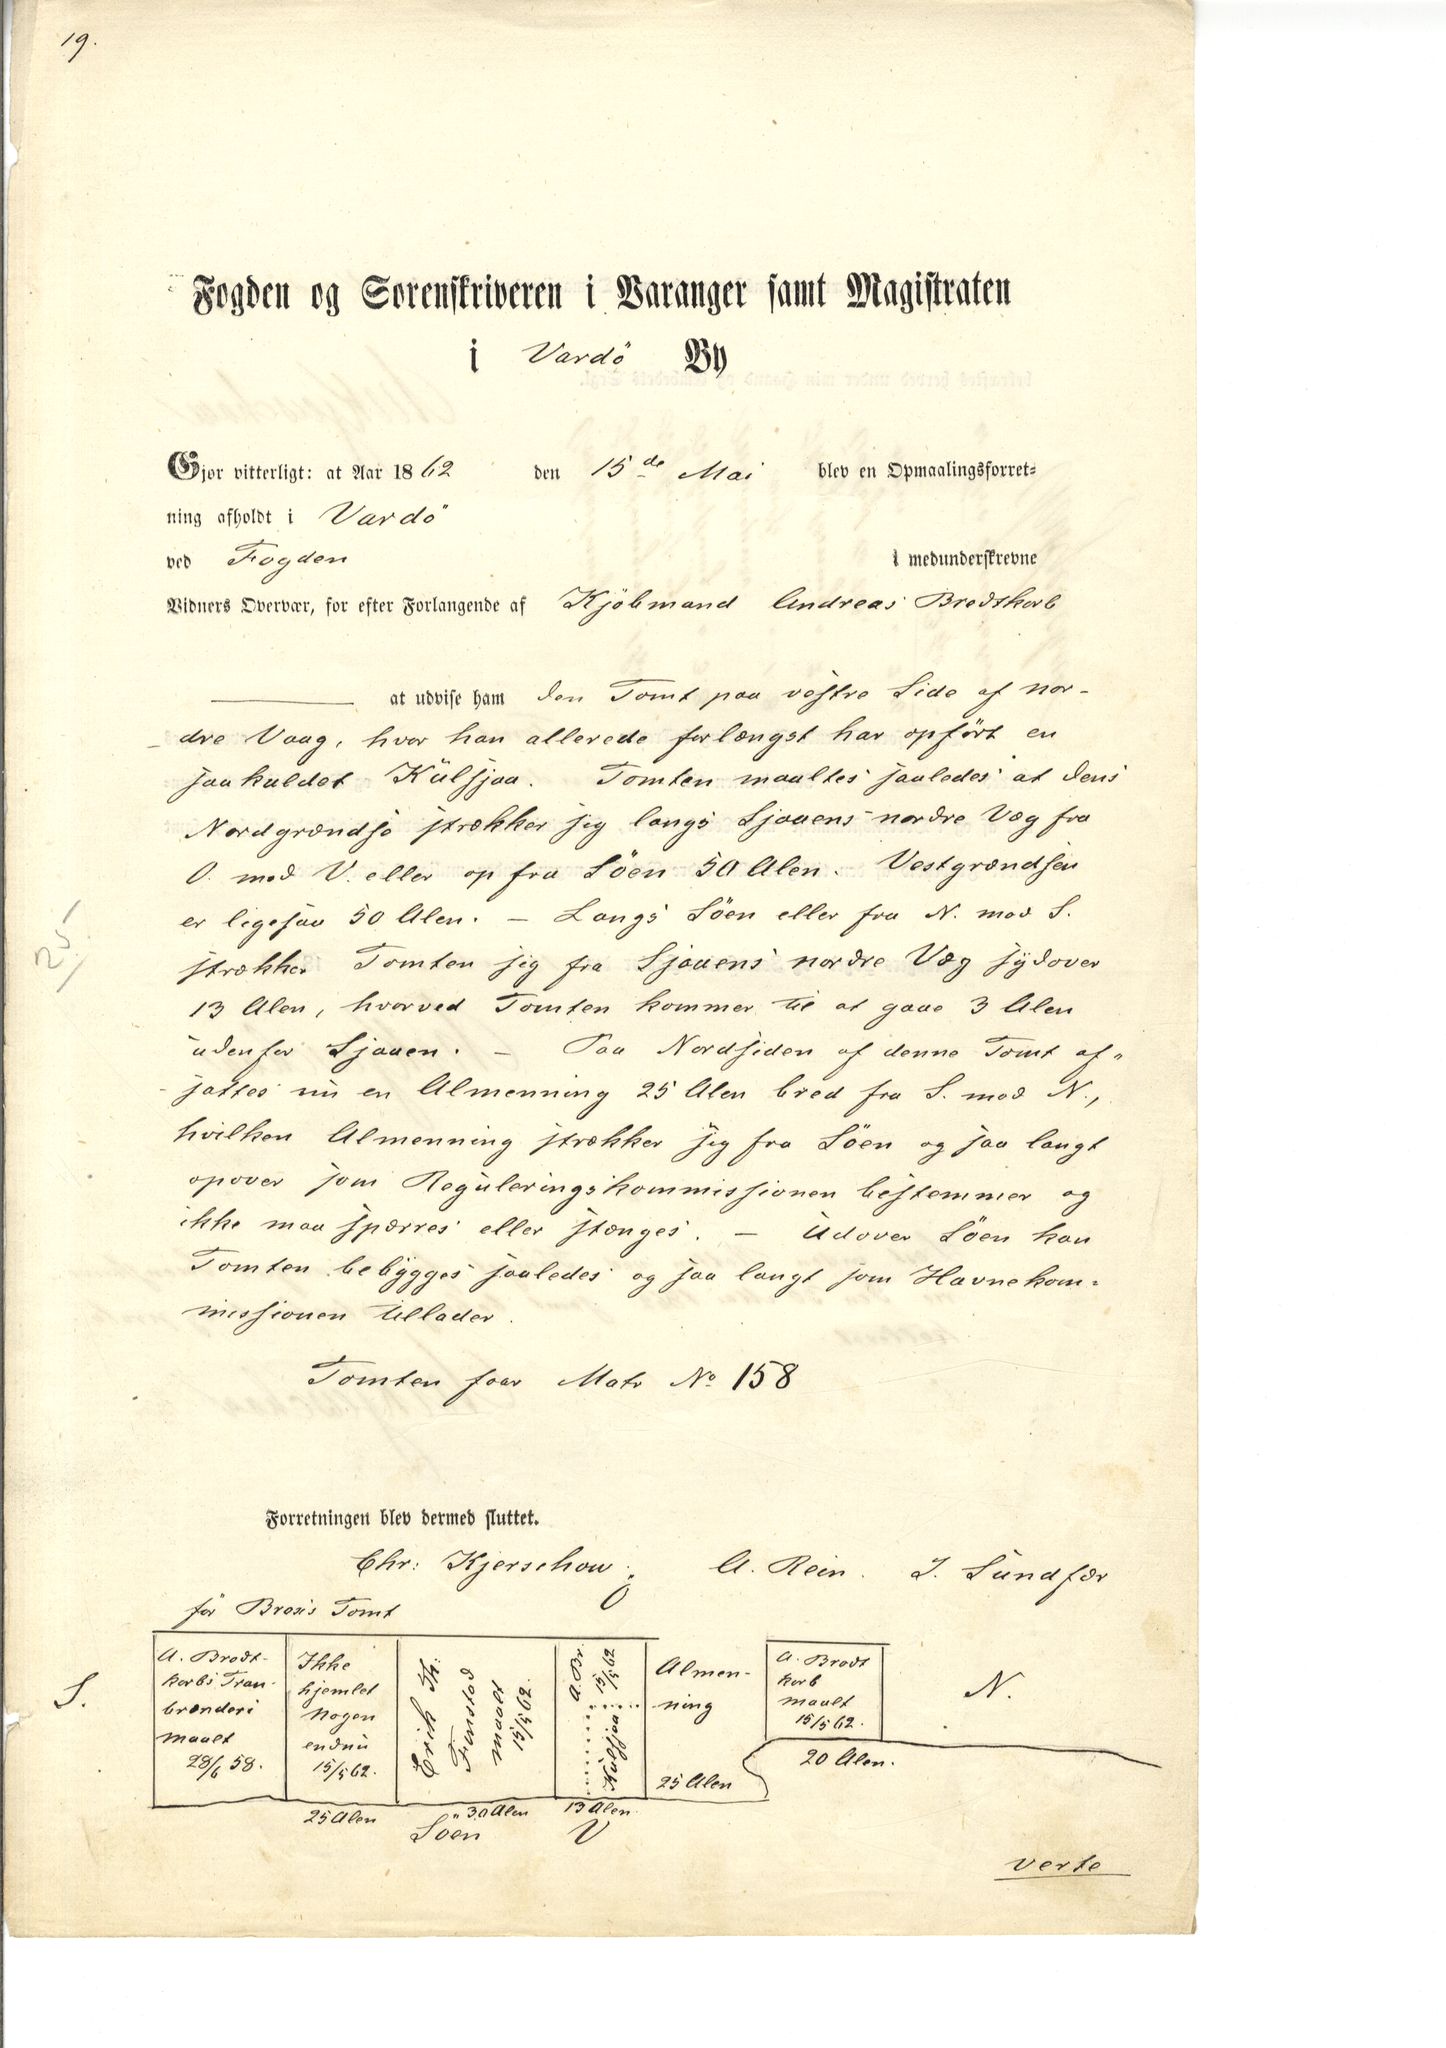 19.
Fogden og Sorenskriveren i Varanger samt Magistraten
i Vardö By
Gjør vitterligt: at Aar 1862 den 15de Mai blev en Opmaalingsforret-
ning afholdt i Vardö
ved Fogden i medunderskrevne
Vidners Overvær, for efter Forlangende af Kjöbmand Andreas Brodtkorb
at udvise ham den Tomt paa vestre Side af nor-
dre Vaag, hvor han allerede forlængst har opfört en
saakaldet Kulsjaa. Tomten maaltes saaledes at dens
Nordgrændse strækker sig langs Sjaaens nordre Væg fra
O. mod V. eller op fra Söen 50 Alen. Vestgrændsen
er ligesaa 50 Alen. — Langs Söen eller fra N. mod S.
strækker Tomten sig fra Sjaaens nordre Væg sydover
13 Alen, hvorved Tomten kommer til at gaae 3 Alen
udenfor Sjaaen. — Paa Nordsiden af denne Tomt af-
sattes nu en Almenning 25 Alen bred fra S. mod N.,
hvilken Almenning strækker sig fra Söen og saa langt
opover som Reguleringskommissionen bestemmer og
ikke maa spærres eller stænges. — Udover Söen kan
Tomten bebygges saaledes og saa langt som Havnekom-
missionen tillader.
Tomten faar Matr No 158
Forretningen blev dermed sluttet.
Chr: Kjerschow. A. Rein. J. Sundfær
för Tomt
S.
A. Brodt-
korbs Tran-
brænderi
maalt
28/6 58.
Ikke
hjemlet
Nogen
endnu
15/5 62.
Erich
Finstad
maalt
15/5 62.
A. Br.
15/5 62
Kulsjaa
Almen-
ning
25 Alen
A. Brodt
korb
maalt
15/5 62.
20 Alen.
N.
25 Alen
30 Alen
13 Alen
Söen
V
verte